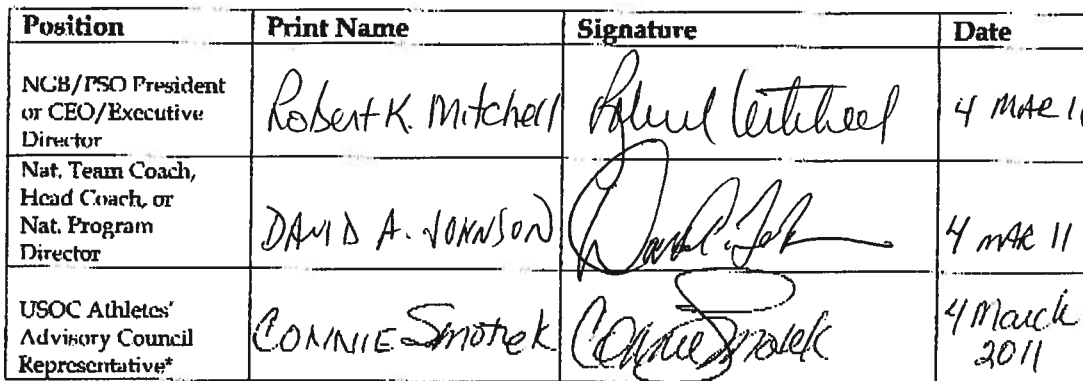 Position Print Name Signature Date
NGB/PSO President
or CEO/Executive
Director
Robert K. Mitchell
4 MAR 11
Nat. Team Coach,
Head Coach, or
Nat. Program
Director
DAVID A. JOHNSON
4 MAR 11
USOC Athletes'
Advisory Council
Representative*
CONNIE Smotek
Connie Smotek
4 March
2011